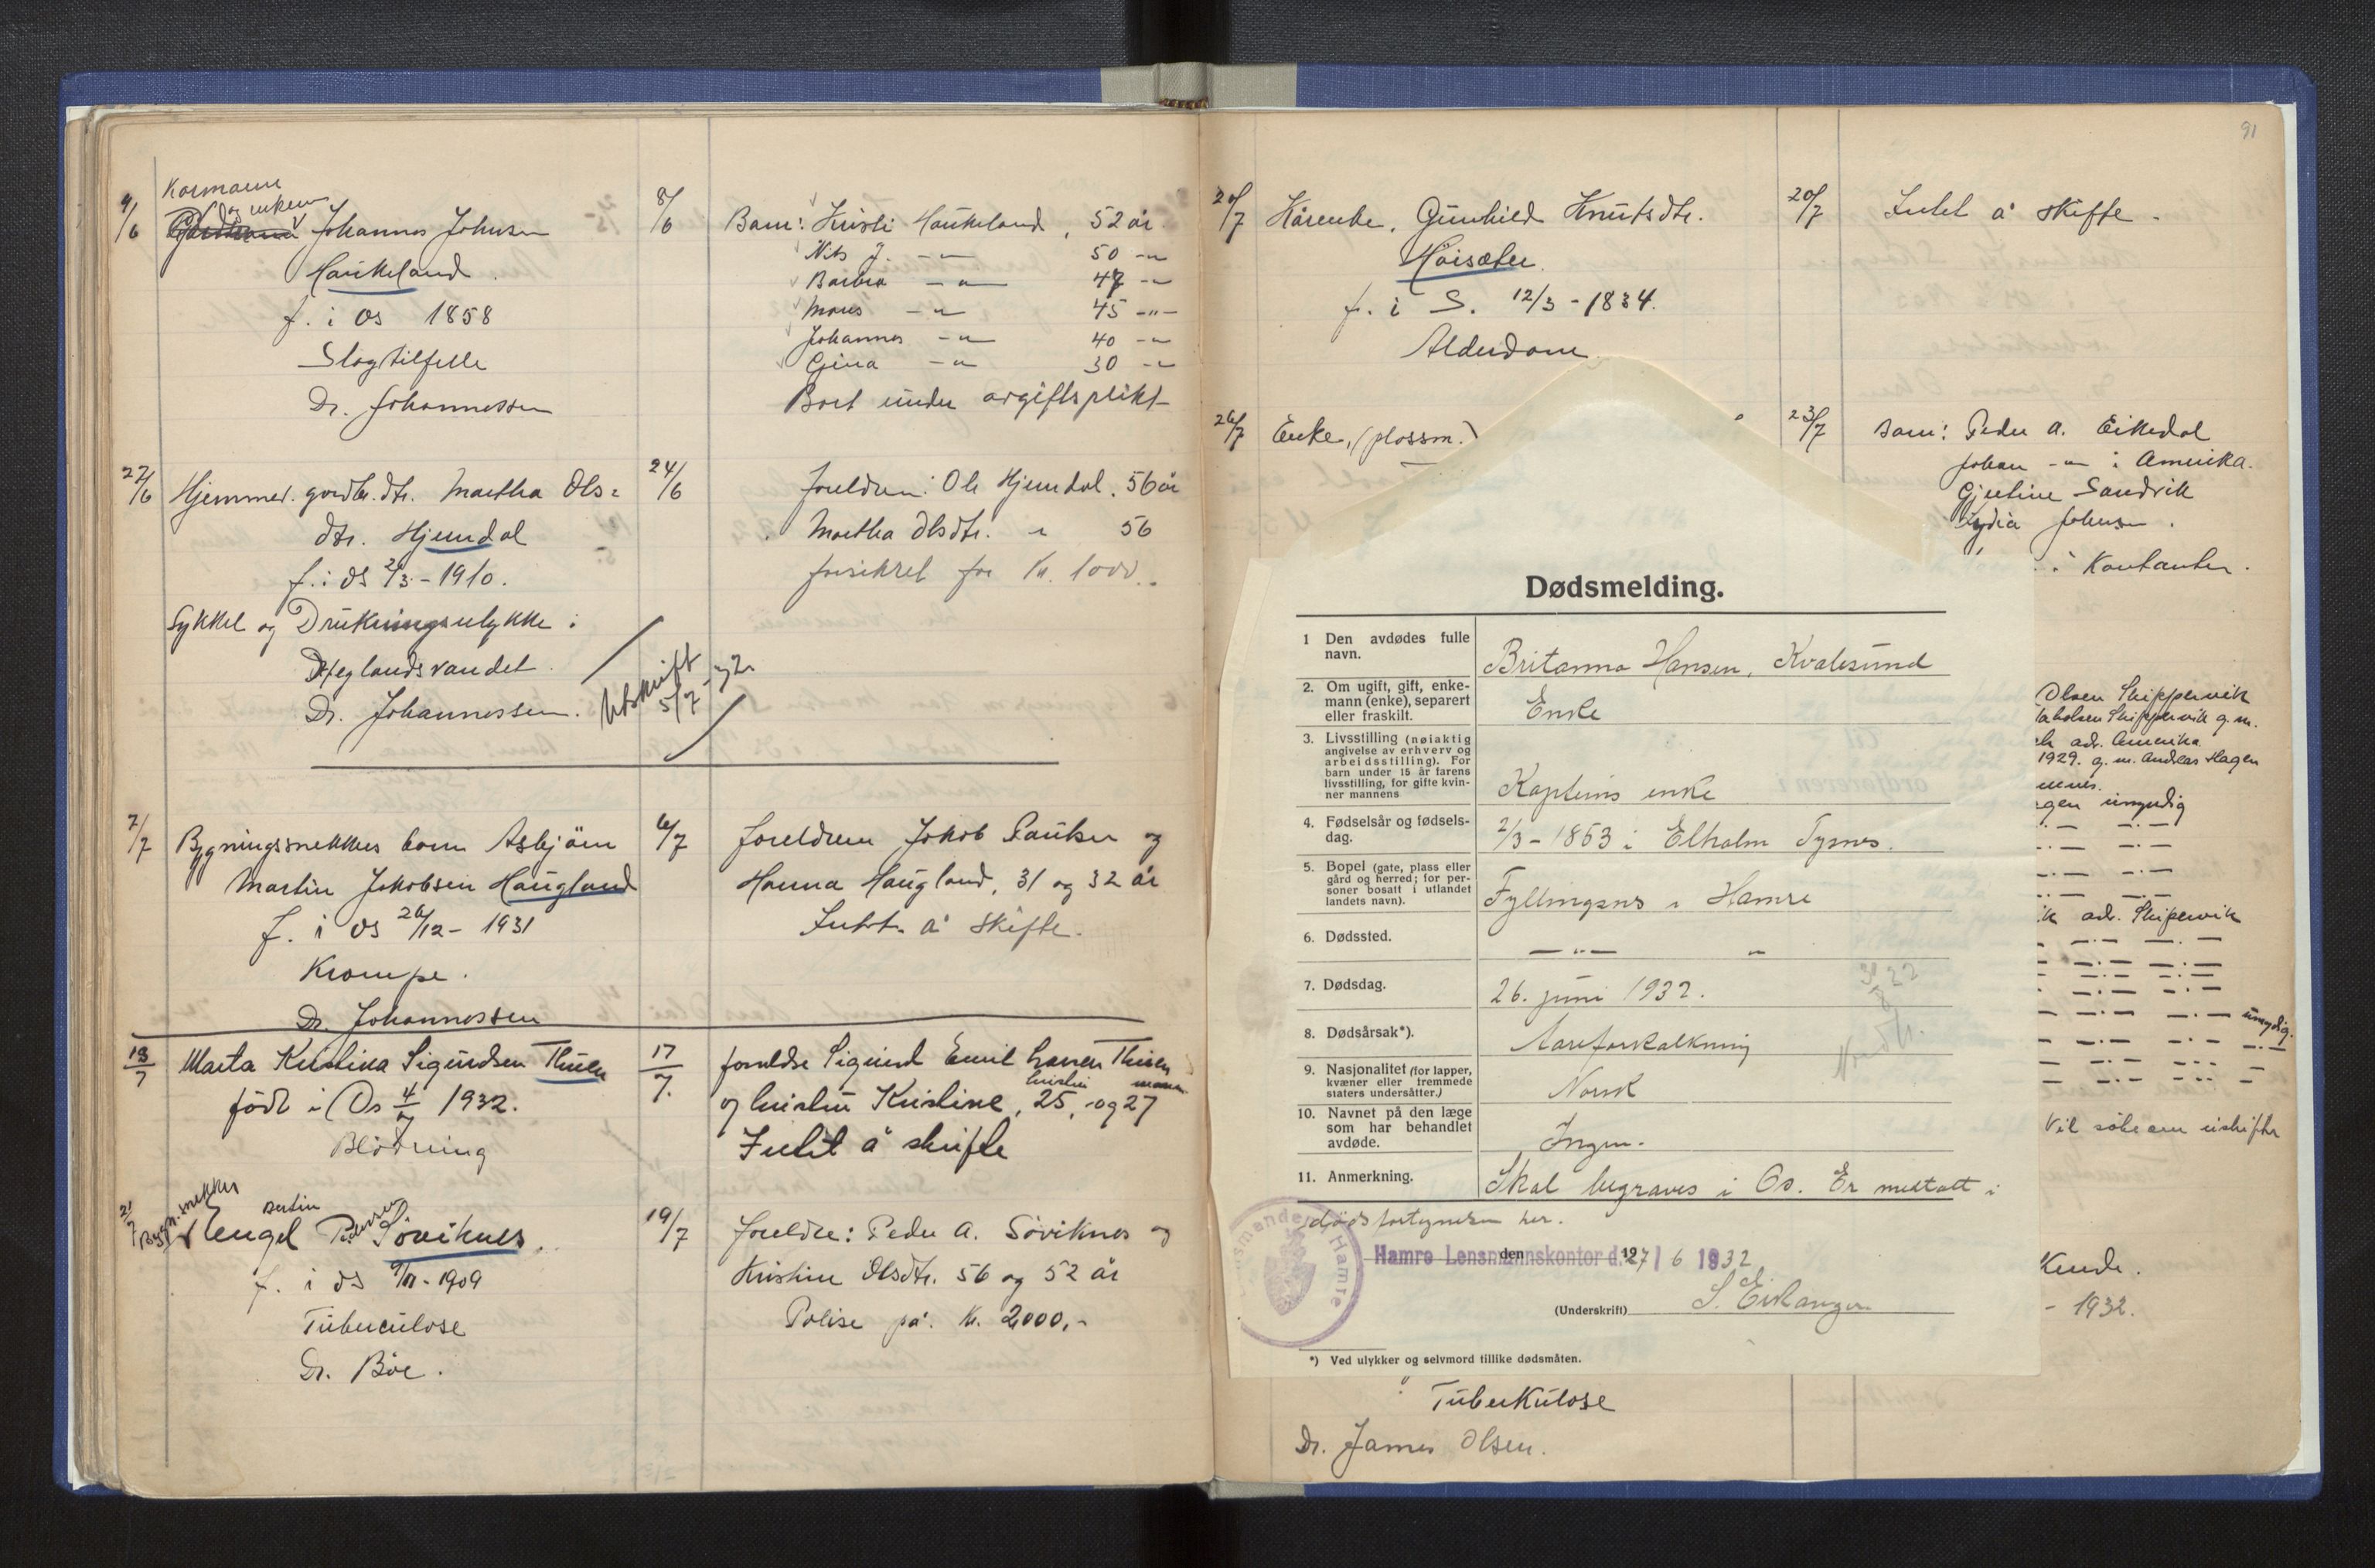 91
9/6
Kårmann
og enkem
Johannes Johnsen
Haukeland.
f. i Os 1858
Slagtilfelle
Dr. Johannessen
8/6
Barn: Kristi Haukeland, 52 år.
Nils J. -"- 50 -"-
Barbra -"- 47 -"-
Mons -"- 45 -"-
Johannes -"- 40 -"-
Gina -"- 30 -"-
Bort under avgiftsplikt
22/6
Hjemmev. gardbr. dtr. Martha Ols=
dtr. Hjemdal
f. i Os 2/3 - 1910.
Sykkel og Drukningsulykke i
Heglandsvandet.
Dr. Johannessen.
Utskrift
5/7-32
24/6
foreldren: Ole Hjemdal, 56 år
Martha Olsdtr. " 56
forsikret for kr. 1000..
7/7
Bygningsnekkers barn Asbjörn
Martin Jakobsen Haugland
f. i Os 26/12 - 1931
Krampe.
Dr. Johannessen
6/7
foreldren Jakob Paulsen og
Hanna Haugland, 31 og 32 år
Intet å skifte.
13/7
Marta Kristina Sigurdsen Thuen
födt i Os 4/7 1932.
Blödning
17/7.
foreldre Sigurd Emil Larsen Thuen
og hustru Kristine, 25, og 27
hustru mann
Intet å skifte
21/7
Bygn. snekker
Mengel Bertin Pedersen Söviknes.
f. i Os 9/11 - 1909
Tuberculose
Dr. Böe.
19/7
foreldre: Peder A. Söviknes og
Kristine Olsdtr. 56 og 52 år
Polise på kr. 2000,-
20/7
Kårenke, Gunhild Knutsdtr.
Høisæter.
f. i S. 12/3 - 1834.
Alderdom.
20/7
Intet å skifte.
26/7
Enke, (plassm.)
23/7
Barn: Peder A. Eikedal
Johan -"- i Amerika.
Gjertine Sandvik
Lydia Johnsen.
i Kontanter.
Dødsmelding.
1 Den avdødes fulle navn.
Britanna Hansen, Kvalesund
2. Om ugift, gift, enkemann (enke), separert eller fraskilt.
Enke
3. Livsstilling (nøiaktig angivelse av erhverv og arbeidsstilling). For barn under 15 år farens livsstilling, for gifte kvinner mannens
Kapteins enke
4. Fødselsår og fødselsdag.
2/3 - 1863 i Elholm Tysnes.
5. Bopel (gate, plass eller gård og herred; for personer bosatt i utlandet landets navn).
Fyllingsnes i Hamre
6. Dødssted.
— " — "
7. Dødsdag.
26. juni 1932.
8. Dødsårsak*).
Aareforkalkning
9. Nasjonalitet (for lapper, kvæner eller fremmede staters undersåtter.)
Norsk
10. Navnet på den læge som har behandlet avdøde.
Ingen.
11. Anmerkning.
Skal begraves i Os. Er mottatt i
dødsfortegnelsen her.
Hamre Lensmannskontor d. 27/6 1932
den 19
S. Eikanger
(Underskrift)
*) Ved ulykker og selvmord tillike dødsmåten.
Hamre
Olsen Skippervik
Jakobsen Skippervik g.m.
adr. Amerika
1929. g.m. Andreas Hagen
gen umyndig
ik adr. Skipervik
umyndig.
Vil söke om uskifte
Kunde.
- 1932.
Tuberkulose
Dr. James Olsen.